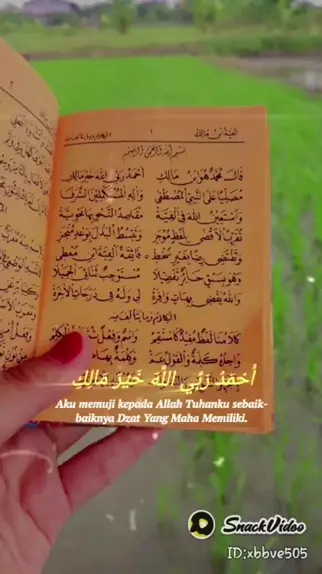 الفية ابن مالك
١
بسم الله الرحمن الرحيم
قال محمد هو ابن مالك احمد ربى الله خير مالك
مصليا على النبى المصطفى وآله المستكملين الشرفا
واستعين الله فى الفيه مقاصد النحو بها محويه
تقرب الاقصى بلفظ موجز وتبسط البذل بوعد منجز
وتقتضى رضا بغير سخط فائقة الفية ابن معطى
وهو بسبق حائز تفضيلا مستوجب ثنائى الجميلا
والله يقضى بهبات وافره لى وله فى درجات الآخره
الكلام وما يتألف منه
كلامنا لفظ مفيد كاستقم واسم وفعل ثم حرف الكلم
واحده كلمة والقول عم وكلمة بها
أَحْمَدُ رَبِّي اللَّهَ خَيْرَ مَالِكِ
Aku memuji kepada Allah Tuhanku sebaik-
baiknya Dzat Yang Maha Memiliki.
SnackVideo
ID:xbbve505